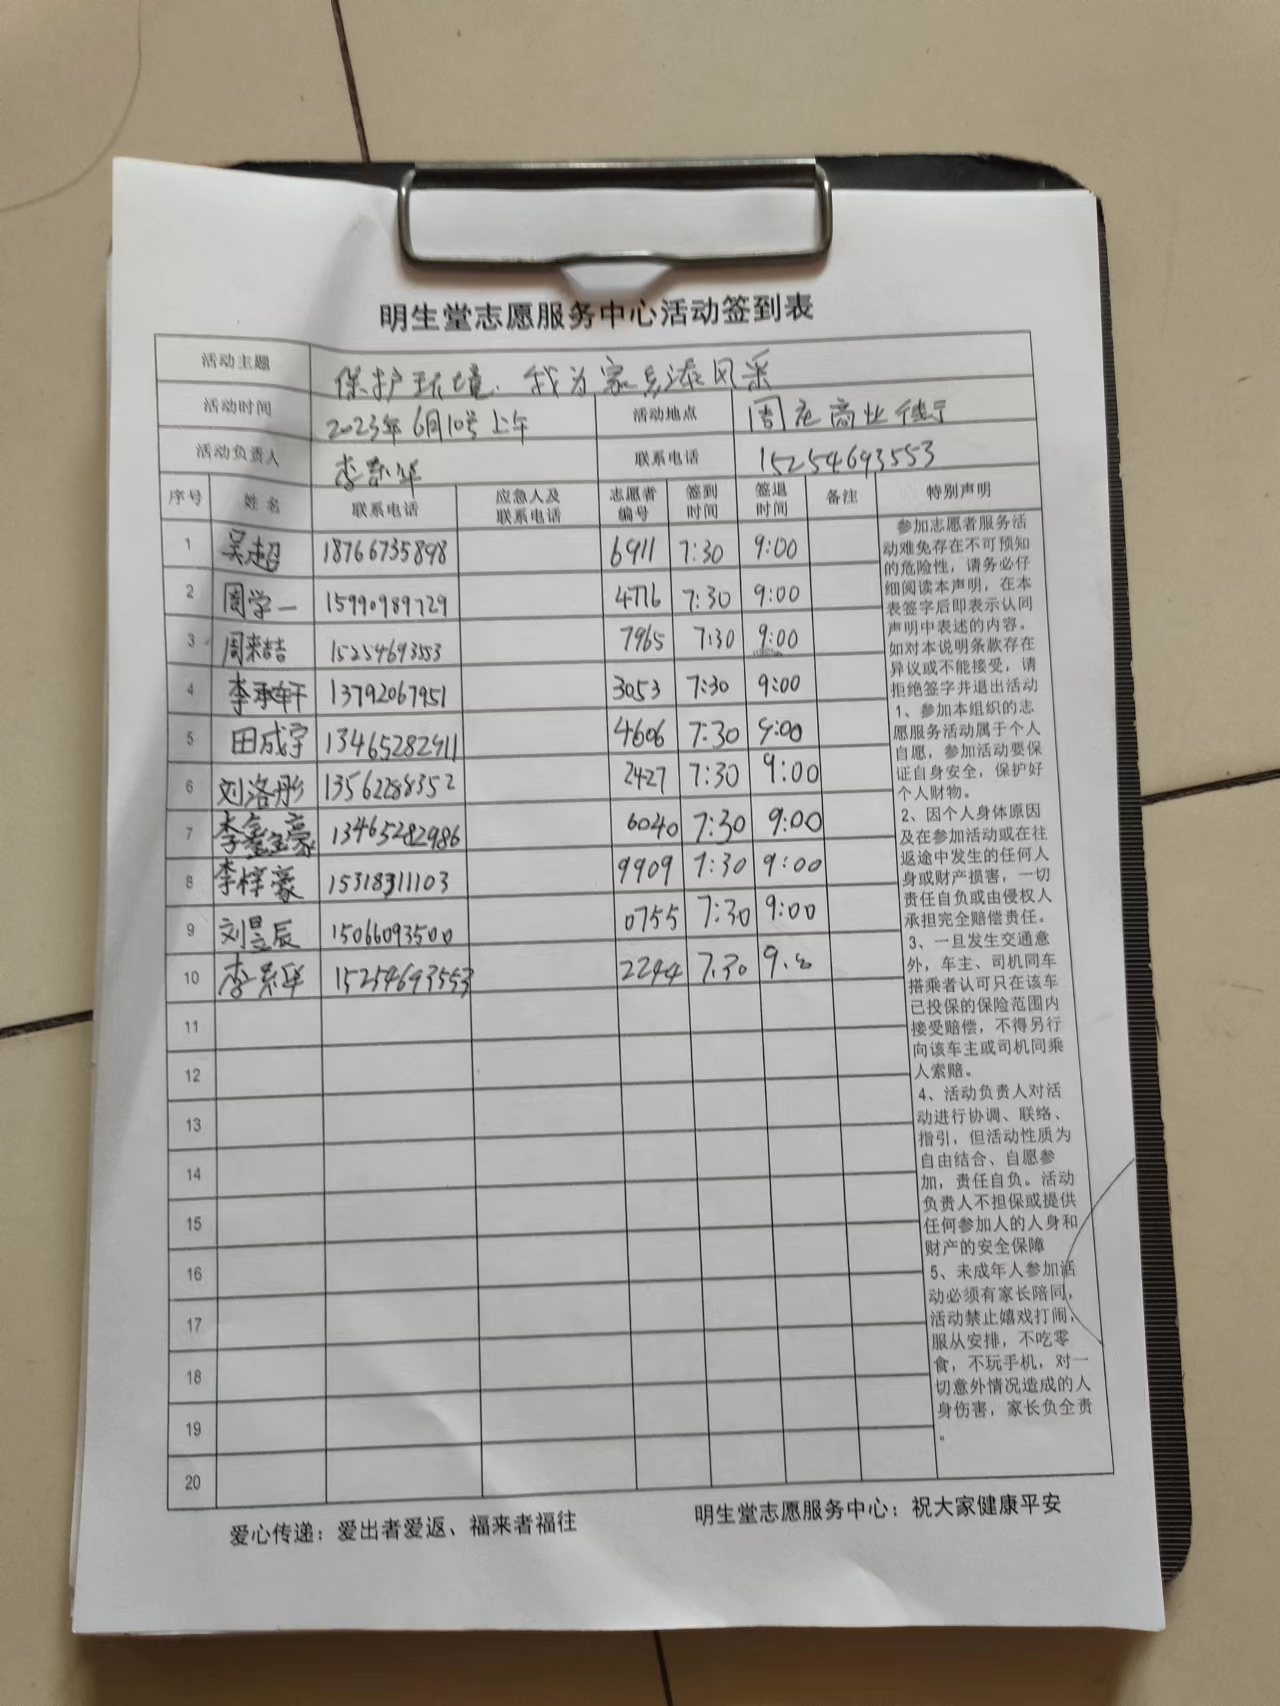 明生堂志愿服务中心活动签到表
活动主题 保护环境,我为家乡添风采
活动时间 2023年6月10号上午 活动地点 周庄商业街
活动负责人 李 华 联系电话 15254693553
序号 姓名 联系电话 应急人及联系电话 志愿者编号 签到时间 签退时间 备注 特别声明
1 吴超 18766735898 6911 7:30 9:00
2 周学一 15990989729 4776 7:30 9:00
3 周来喆 15254693553 7965 7:30 9:00
4 李承轩 13792067951 3053 7:30 9:00
5 田成宇 13465282911 4606 7:30 9:00
6 刘洛彤 13562288352 2427 7:30 9:00
7 李鑫豪 13465282986 6040 7:30 9:00
8 李梓豪 15318311103 9909 7:30 9:00
9 刘昱辰 15066093500 0755 7:30 9:00
10 李 华 15254693553 2244 7.30
11
12
13
14
15
16
17
18
19
20
参加志愿者服务活
动难免存在不可预知
的危险性,请务必仔
细阅读本声明,在本
表签字后即表示认同
声明中表述的内容。
如对本说明条款存在
异议或不能接受,请
拒绝签字并退出活动
1、参加本组织的志
愿服务活动属于个人
自愿,参加活动要保
证自身安全,保护好
个人财物。
2、因个人身体原因
及在参加活动或在往
返途中发生的任何人
身或财产损害,一切
责任自负或由侵权人
承担完全赔偿责任。
3、一旦发生交通意
外,车主、司机同车
搭乘者认可只在该车
已投保的保险范围内
接受赔偿,不得另行
向该车主或司机同乘
人索赔。
4、活动负责人对活
动进行协调、联络、
指引,但活动性质为
自由结合、自愿参
加,责任自负。活动
负责人不担保或提供
任何参加人的人身和
财产的安全保障
5、未成年人参加活
动必须有家长陪同,
活动禁止嬉戏打闹,
服从安排,不吃零
食,不玩手机,对一
切意外情况造成的人
身伤害,家长负全责
。
爱心传递:爱出者爱返、福来者福往 明生堂志愿服务中心:祝大家健康平安